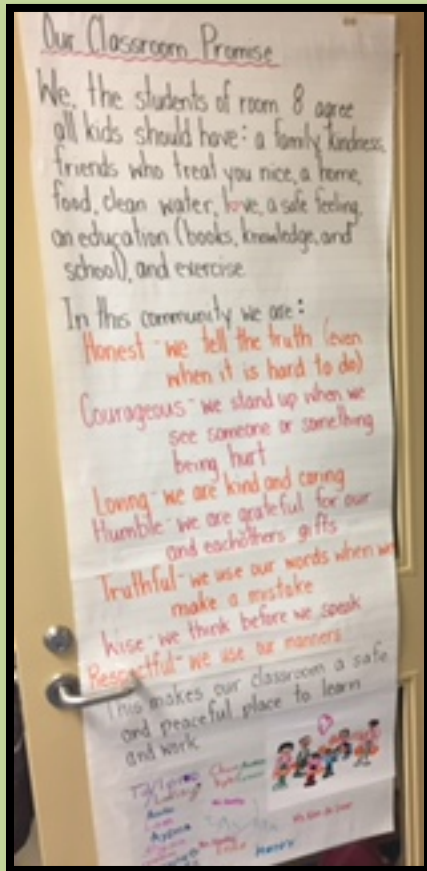 Our Classroom Promise
We, the students of room 8 agree
all kids should have: a family, kindness,
friends who treat you nice, a home,
food, clean water, love, a safe feeling,
an education (books, knowledge, and
school), and exercise
In this community we are:
Honest - we tell the truth (even
when it is hard to do)
Courageous - we stand up when we
see someone or something
being hurt
Loving - we are kind and caring
Humble - we are grateful for our
and eachothers gifts
Truthful - we use our words when we
make a mistake
Wise - we think before we speak
Respectful - we use our manners
This makes our classroom a safe
and peaceful place to learn
and work